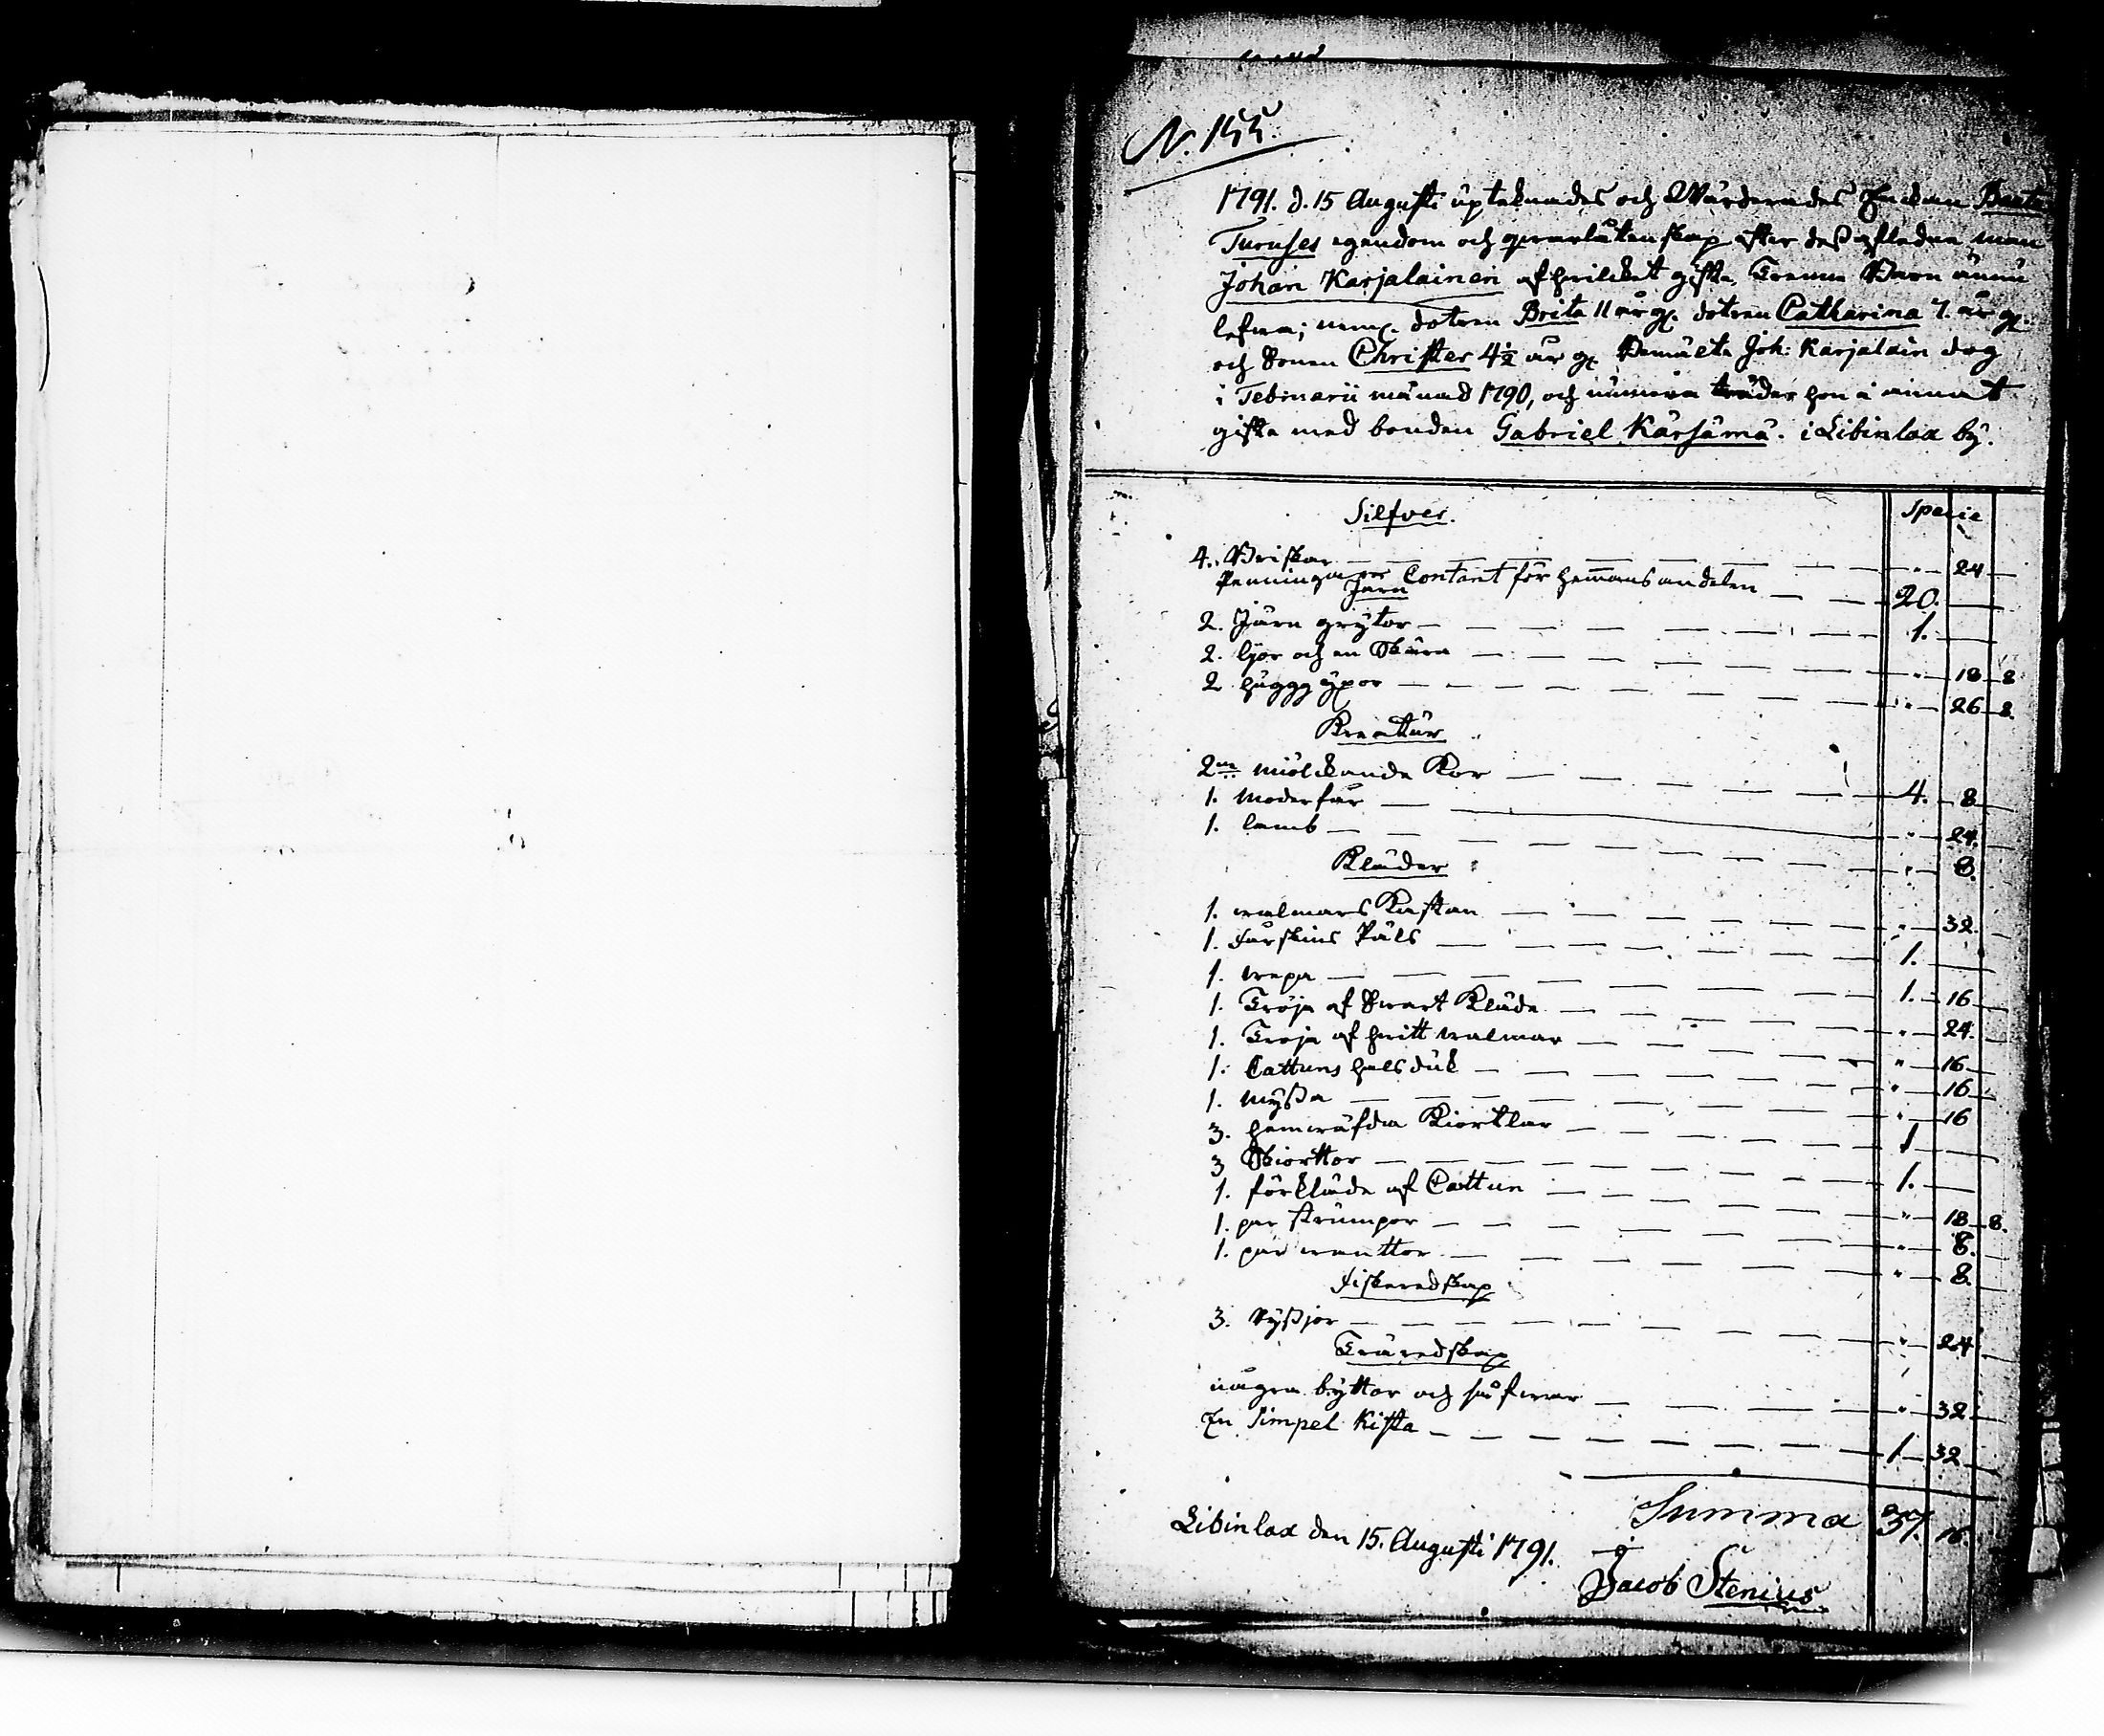 N. 155.
1791. d. 15 Augusti upteknades och Wärderades Enckan
Turuses egendom och qvarlåtenskap efter dess afledna man
Johan Karjalainen af hvilcket gifte, Trenne Barn ännu
lefva; neml. dotren Brita 11 år gl. dotren Catharina 7. år gl.
och Sonen Christer 4½ år gl. Bemälte Joh: Karjalain dog
i Februarii månad 1790, och numera träder hon i annat
gifte med bonden Gabriel Kärsämä. i Libinlax by.
Silfver. Specie
4. Briskor " 24
Penningar Contant för hemmansandelen 20.
Järn
2. Järn grytor 1.
2. ljor och en Skära " 18 8
2 huggyxor " 26 8.
Kreatur
2ne miölckande Kor 4. 8
1. moderfår " 24.
1. lamb " 8.
Kläder
1. walmars Kaftan " 32.
1. Fårskins Päls 1.
1. wepa 1. 16
1. Tröja af Svart Kläde " 24.
1. Tröja af hvitt walmar " 16
1. Cattuns halsduk " 16
1. myssa " 16
3. hemwäfda Kiortlar 1
3 Skiorttor 1.
1. förkläde af Cattun " 18 8.
1. par strumpor " 8.
1. par wanttar " 8.
Fiskeredskap
3. Ryssjor " 24
Träredskap
några byttor och såfwar " 32
En Simpel Kista 1 32
Summa 37. 16.
Libinlax den 15. Augusti 1791.
Jacob Stenius